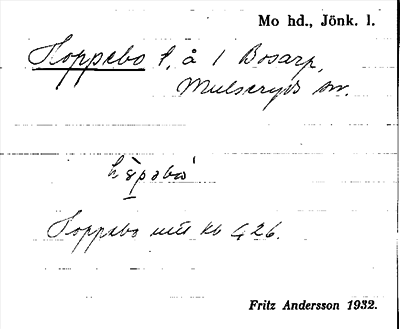 Mo hd., Jönk. l.
Hoppebo t, å 1 Bosarp,
Mulseryds sn.
Hoppebo kb 426.
Fritz Andersson 1932.